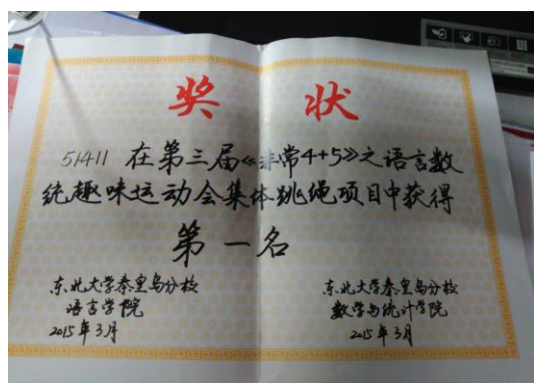 奖状
51411 在第三届《非常4+5》之语言数
统趣味运动会集体跳绳项目中获得
第一名
东北大学秦皇岛分校
语言学院
2015年3月
东北大学秦皇岛分校
数学与统计学院
2015年3月